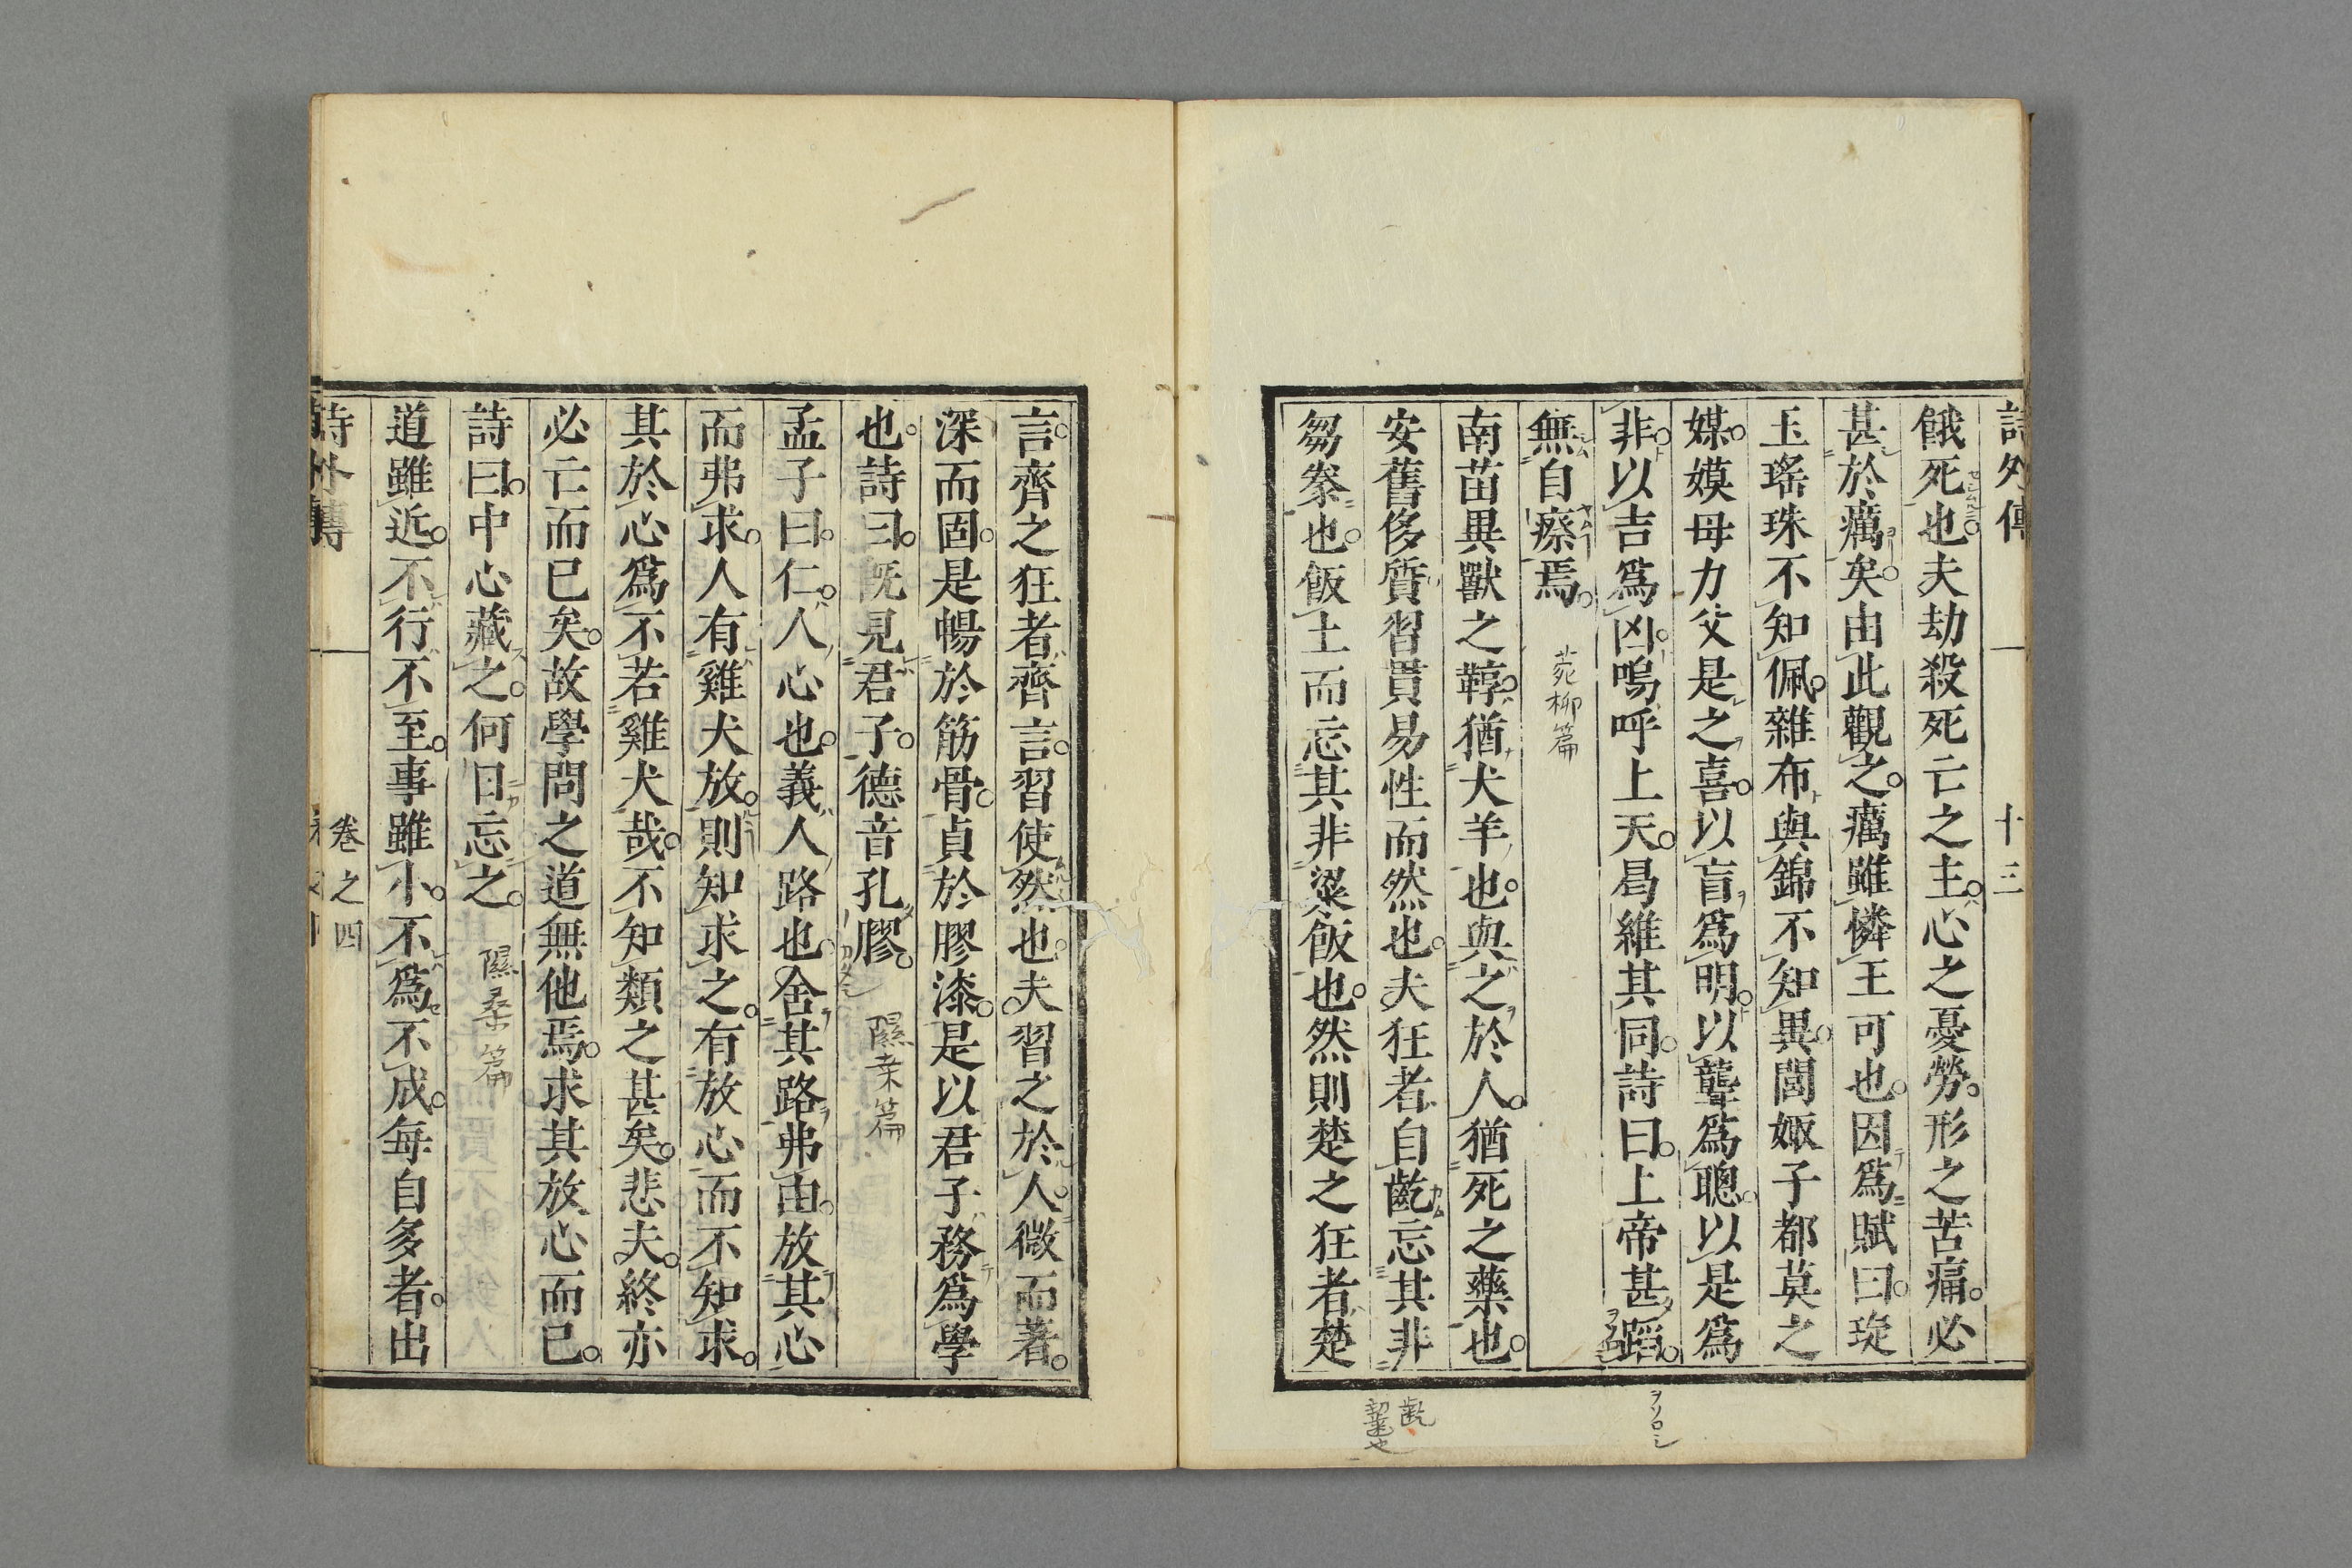 詩外傳 十三
餓死也。夫劫殺死亡之主。心之憂勞。形之苦痛。必
甚於癘矣。由此觀之。癘雖憐王可也。因爲賦曰。琁
玉瑤珠不知佩。雜布與錦不知異。閭娵子都莫之
媒。嫫母力父是之喜。以盲爲明。以聾爲聰。以是爲
非。以吉爲凶。嗚呼上天。曷維其同。詩曰。上帝甚蹈。
無自瘵焉。 菀柳篇
南苗異獸之鞟。猶犬羊也。與之於人。猶死之藥也。
安舊侈質習貫易性而然也。夫狂者自齕忘其非
芻豢也。飯土而忘其非粱飯也。然則楚之狂者楚
ヲソロシ
齕
齧也
言。齊之狂者齊言。習使然也。夫習之於人。微而著。
深而固。是暢於筋骨。貞於膠漆。是以君子務爲學
也。詩曰。既見君子。德音孔膠。 隰桒篇
孟子曰。仁。人心也。義人路也。舍其路弗由。放其心
而弗求。人有雞犬放。則知求之。有放心而不知求。
其於心爲不若雞犬哉。不知類之甚矣。悲夫。終亦
必亡而已矣。故學問之道無他焉。求其放心而已。
詩曰。中心藏之。何日忘之。 隰桑篇
道雖近。不行不至。事雖小。不爲不成。每自多者。出
詩外傳 卷之四